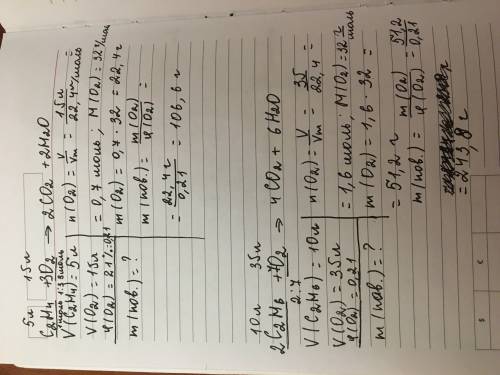 5л 15л
C2H4 + 3O2 → 2CO2 + 2H2O
1моль : 3моль
V(C2H4) = 5л
V(O2) = 15л
φ(O2) = 21% = 0,21
m(пов.) = ?
n(O2) = V/Vm = 15л/22,4л/моль =
= 0,7 моль; M(O2) = 32г/моль
m(O2) = 0,7 · 32 = 22,4г
m(пов.) = m(O2)/φ(O2) =
= 22,4г/0,21 = 106,6г
10л 35л
2C2H6 + 7O2 → 4CO2 + 6H2O
2:7
V(C2H6) = 10л
V(O2) = 35л
φ(O2) = 0,21
m(пов.) = ?
n(O2) = V/Vm = 35/22,4 =
= 1,6 моль; M(O2) = 32 г/моль
m(O2) = 1,6 · 32 =
= 51,2 г
m(пов.) = m(O2)/φ(O2) = 51,2/0,21
= 243,8 г
s
c